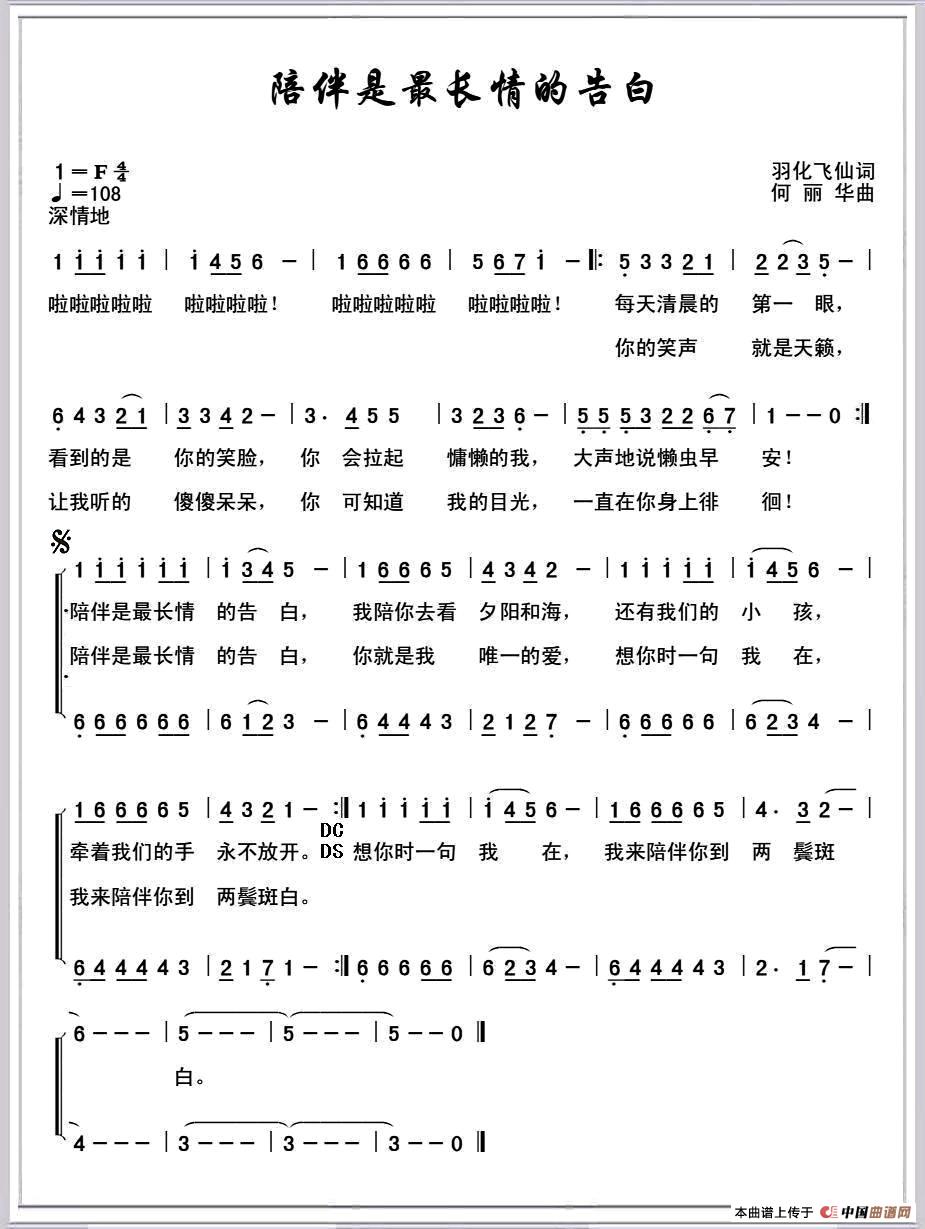 陪伴是最长情的告白
1=F 4/4
羽化飞仙词
♩=108
何 丽 华曲
深情地
1 i i i i | i 4 5 6 - | 1 6 6 6 6 | 5 6 7 i - ‖: 5 3 3 2 1 | 2 2 3 5 - |
啦啦啦啦啦 啦啦啦啦! 啦啦啦啦啦 啦啦啦啦! 每天清晨的 第一 眼,
你的笑声 就是天籁,
6 4 3 2 1 | 3 3 4 2 - | 3· 4 5 5 | 3 2 3 6 - | 5 5 5 3 2 2 6 7 | 1 - - 0 :‖
看到的是 你的笑脸, 你 会拉起 慵懒的我, 大声地说懒虫早 安!
让我听的 傻傻呆呆, 你 可知道 我的目光, 一直在你身上徘 徊!
1 i i i i i | i 3 4 5 - | 1 6 6 6 5 | 4 3 4 2 - | 1 i i i i | i 4 5 6 - |
陪伴是最长情 的告 白, 我陪你去看 夕阳和海, 还有我们的 小 孩,
陪伴是最长情 的告 白, 你就是我 唯一的爱, 想你时一句 我 在,
6 6 6 6 6 6 | 6 1 2 3 - | 6 4 4 4 3 | 2 1 2 7 - | 6 6 6 6 6 | 6 2 3 4 - |
1 6 6 6 6 5 | 4 3 2 1 - :‖ 1 i i i i | i 4 5 6 - | 1 6 6 6 6 5 | 4· 3 2 - |
DC
牵着我们的手 永不放开。DS 想你时一句 我 在, 我来陪伴你到 两 鬓斑
我来陪伴你到 两鬓斑白。
6 4 4 4 4 3 | 2 1 7 1 - :‖ 6 6 6 6 6 | 6 2 3 4 - | 6 4 4 4 4 3 | 2· 1 7 - |
6 - - - | 5 - - - | 5 - - - | 5 - - 0 ‖
白。
4 - - - | 3 - - - | 3 - - - | 3 - - 0 ‖
本曲谱上传于 中国曲谱网